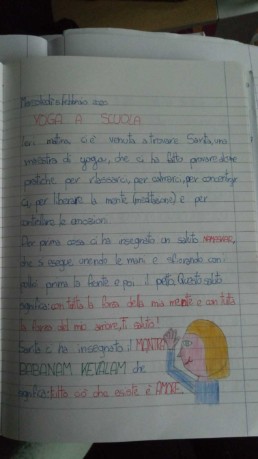 Mercoledì 5 febbraio 2020
YOGA A SCUOLA
Ieri mattina ci è venuta a trovare Santa, una
maestra di yoga, che ci ha fatto provare delle
pratiche per rilassarci, per calmarci, per concentrar
ci, per liberare la mente (meditazione) e per
controllare le emozioni.
Per prima cosa ci ha insegnato un saluto NAMASKAR,
che si esegue unendo le mani e sfiorando con i
pollici prima la fronte e poi il petto. Questo saluto
significa: con tutta la forza della mia mente e con tutta
la forza del mio amore, ti saluto!
Santa ci ha insegnato il MANTRA
BABANAM KEVALAM che
significa: tutto ciò che esiste è AMORE.